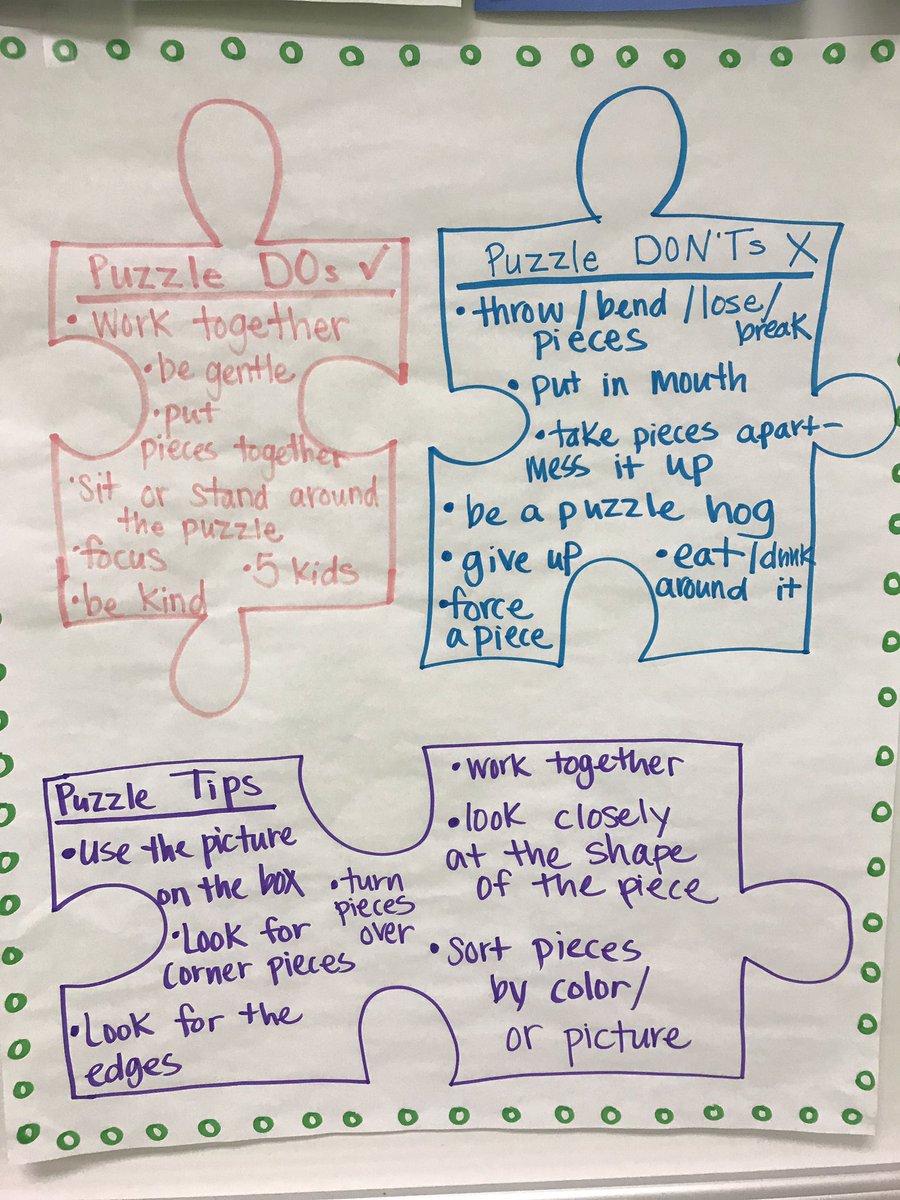 Puzzle DOs ✓
• Work together
• be gentle
• put
pieces together
• Sit or stand around
the puzzle
• focus
• 5 kids
• be kind
Puzzle DON'Ts X
• throw / bend / lose /
break
pieces
• put in mouth
• take pieces apart-
mess it up
• be a puzzle hog
• give up
• eat/drink
around it
• force
a piece
Puzzle Tips
• Use the picture
on the box
• turn
pieces
over
• Look for
corner pieces
• Look for the
edges
• work together
• look closely
at the shape
of the piece
• Sort pieces
by color/
or picture